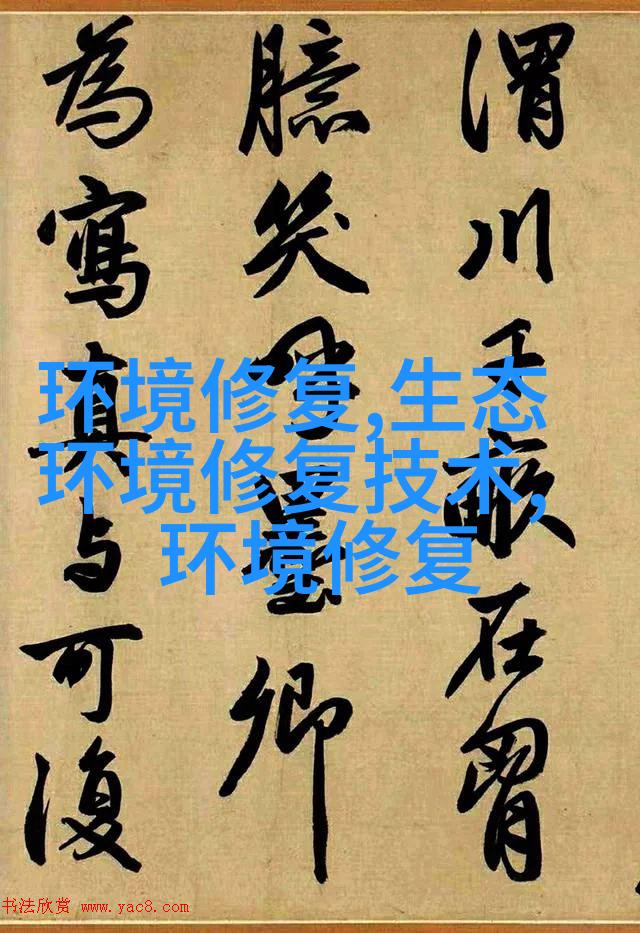 渭川千畝在胷
臆笑呼墨卿
為寫真与可復
环境修复,生态
环境修复技术,
环境修复
书法欣赏 www.yac8.com